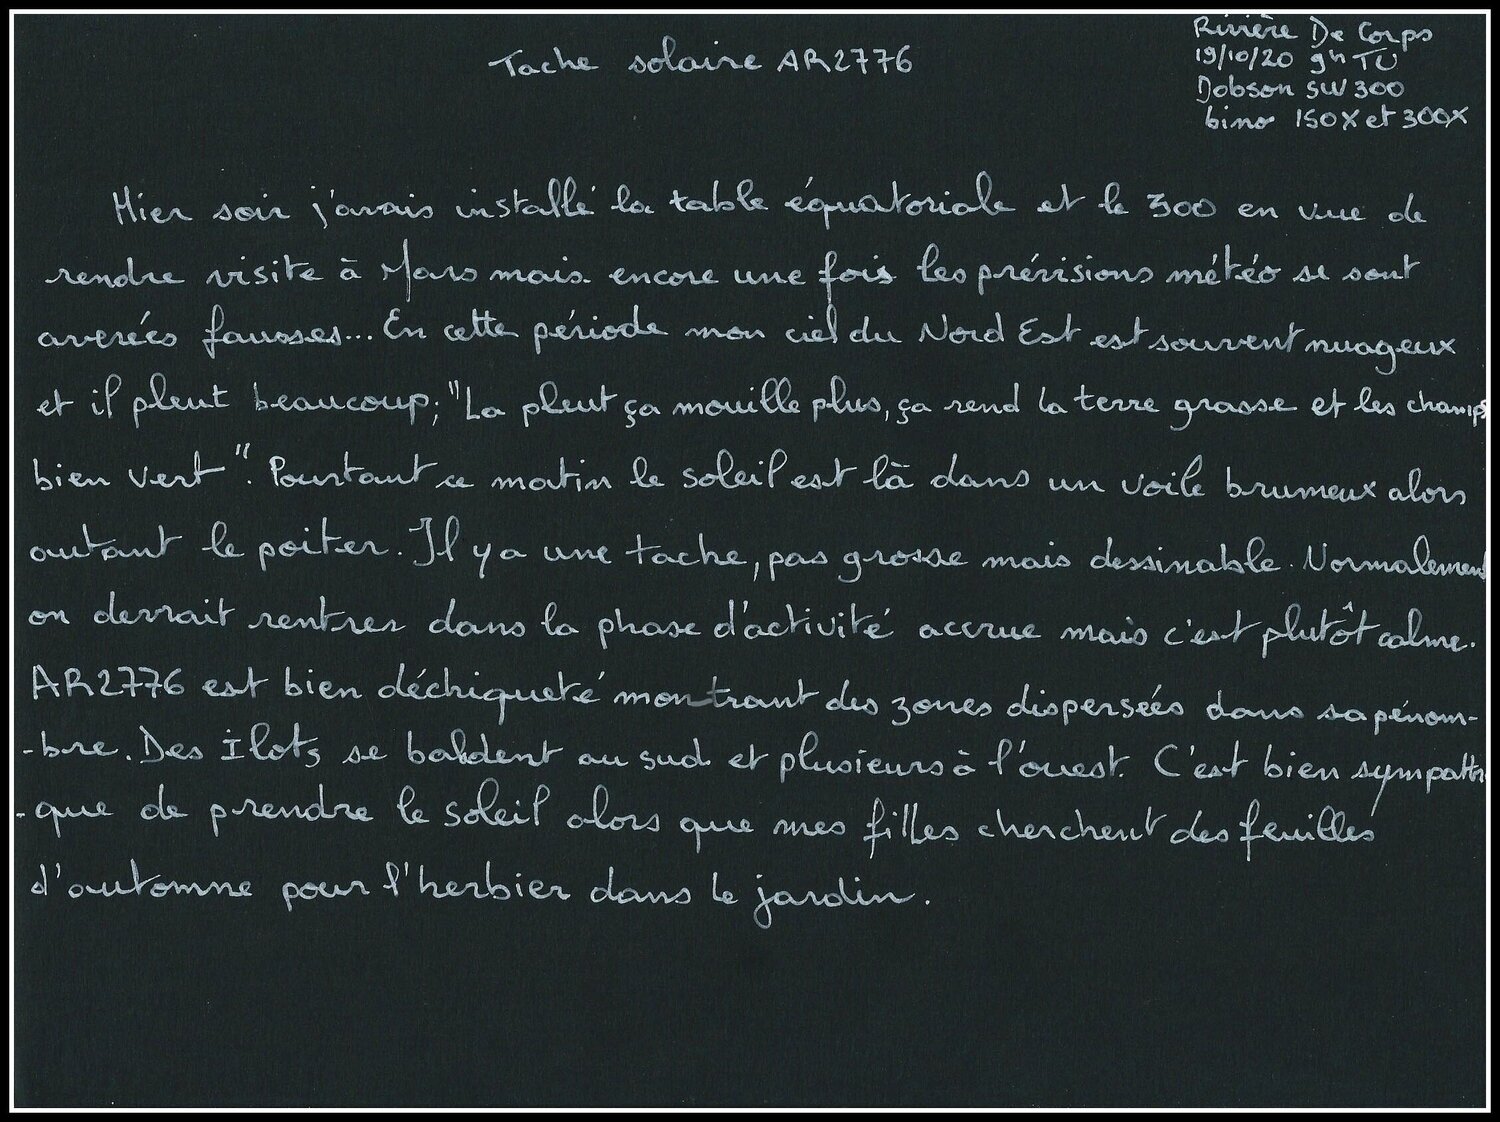 Tache solaire AR2776
Rivière De Corps
19/10/20 9h TU
Dobson SW 300
bino 150X et 300X
Hier soir j'avais installé la table équatoriale et le 300 en vue de
rendre visite à Mars mais encore une fois les prévisions météo se sont
averées fausses... En cette période mon ciel du Nord Est est souvent nuageux
et il pleut beaucoup; "La pleut ça mouille plus, ça rend la terre grasse et les champs
bien vert". Pourtant ce matin le soleil est là dans un voile brumeux alors
autant le poiter. Il y a une tache, pas grosse mais dessinable. Normalement
on devrait rentrer dans la phase d'activité accrue mais c'est plutôt calme.
AR2776 est bien déchiqueté montrant des zones dispersées dans sa pénom-
-bre. Des îlots se baladent au sud et plusieurs à l'ouest. C'est bien sympathi
-que de prendre le soleil alors que mes filles cherchent des feuilles
d'automne pour l'herbier dans le jardin.